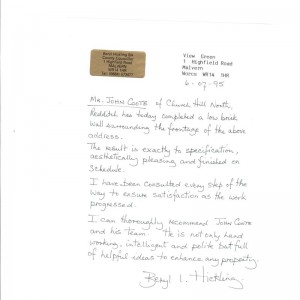 View Green
1 Highfield Road
Malvern
Worcs WR14 1HR
6-07-95
Mr. John Coote of Church Hill North,
Redditch has today completed a low brick
wall surrounding the frontage of the above
address.
The result is exactly to specification,
aesthetically pleasing and finished on
schedule.
I have been consulted every step of the
way to ensure satisfaction as the work
progressed.
I can thoroughly recommend John Coote
and his team. He is not only hard
working, intelligent and polite but full
of helpful ideas to enhance any property.
Beryl I.